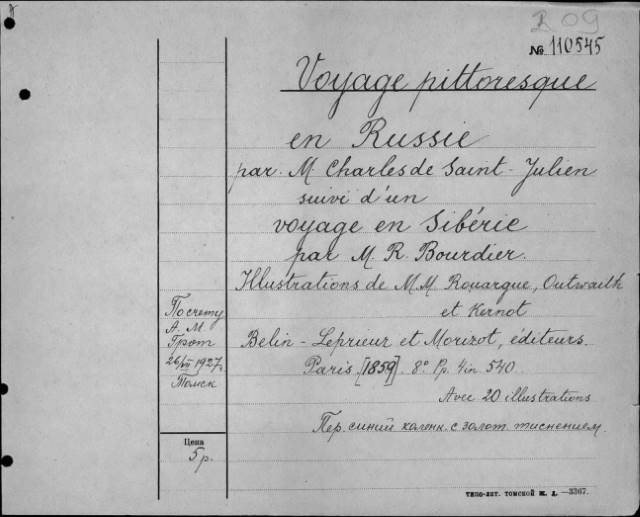 R 09
№ 110545
Voyage pittoresque
en Russie
par M. Charles de Saint-Julien
suivi d'un
voyage en Sibérie
par M. R. Bourdier.
Illustrations de M.M. Rouargue, Outwaith
et Kernot
Belin-Leprieur et Morizot, éditeurs.
Paris [1859] 8° Pp. 4in 540.
Avec 20 illustrations
Пер. синий коленк. с золот. тиснением.
По счету
А. М.
Грот
26/VII 1927г.
Томск
Цена
5 р.
ТИПО-ЛИТ. ТОМСКОЙ Ж. Д. —3367.